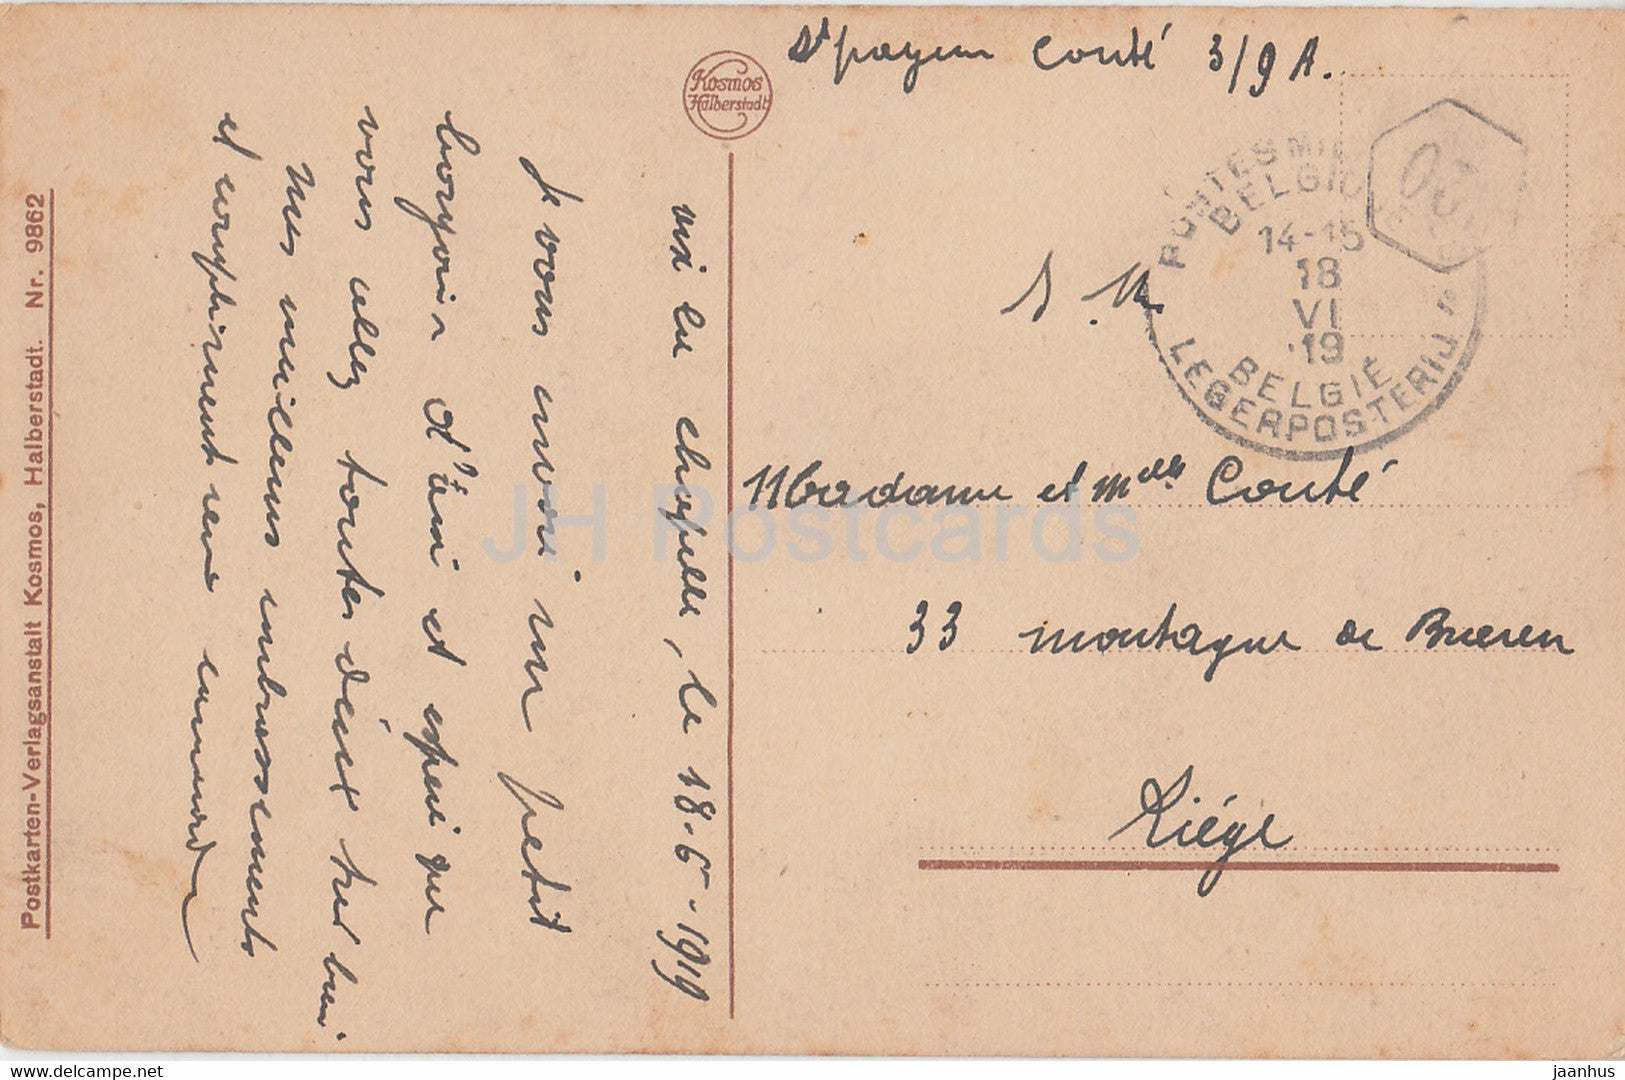 St payeur Conté 3/9 A.
Kosmos
Halberstadt
POSTES MIL
BELGIQ
14-15
18
VI
19
BELGIË
LEGERPOSTERIJ
S. M.
Madame et Melles Conté
33 montagne de Bueren
Liége
aix la chapelle, le 18-6-1919
Je vous envoi un petit
bonjour d'ami et espere que
vous allez toutes deux tres bien
Mes meilleurs embrassements
et compliments
Postkarten-Verlagsanstalt Kosmos, Halberstadt. Nr. 9862
JH Postcards
delcampe.net
jaanhus